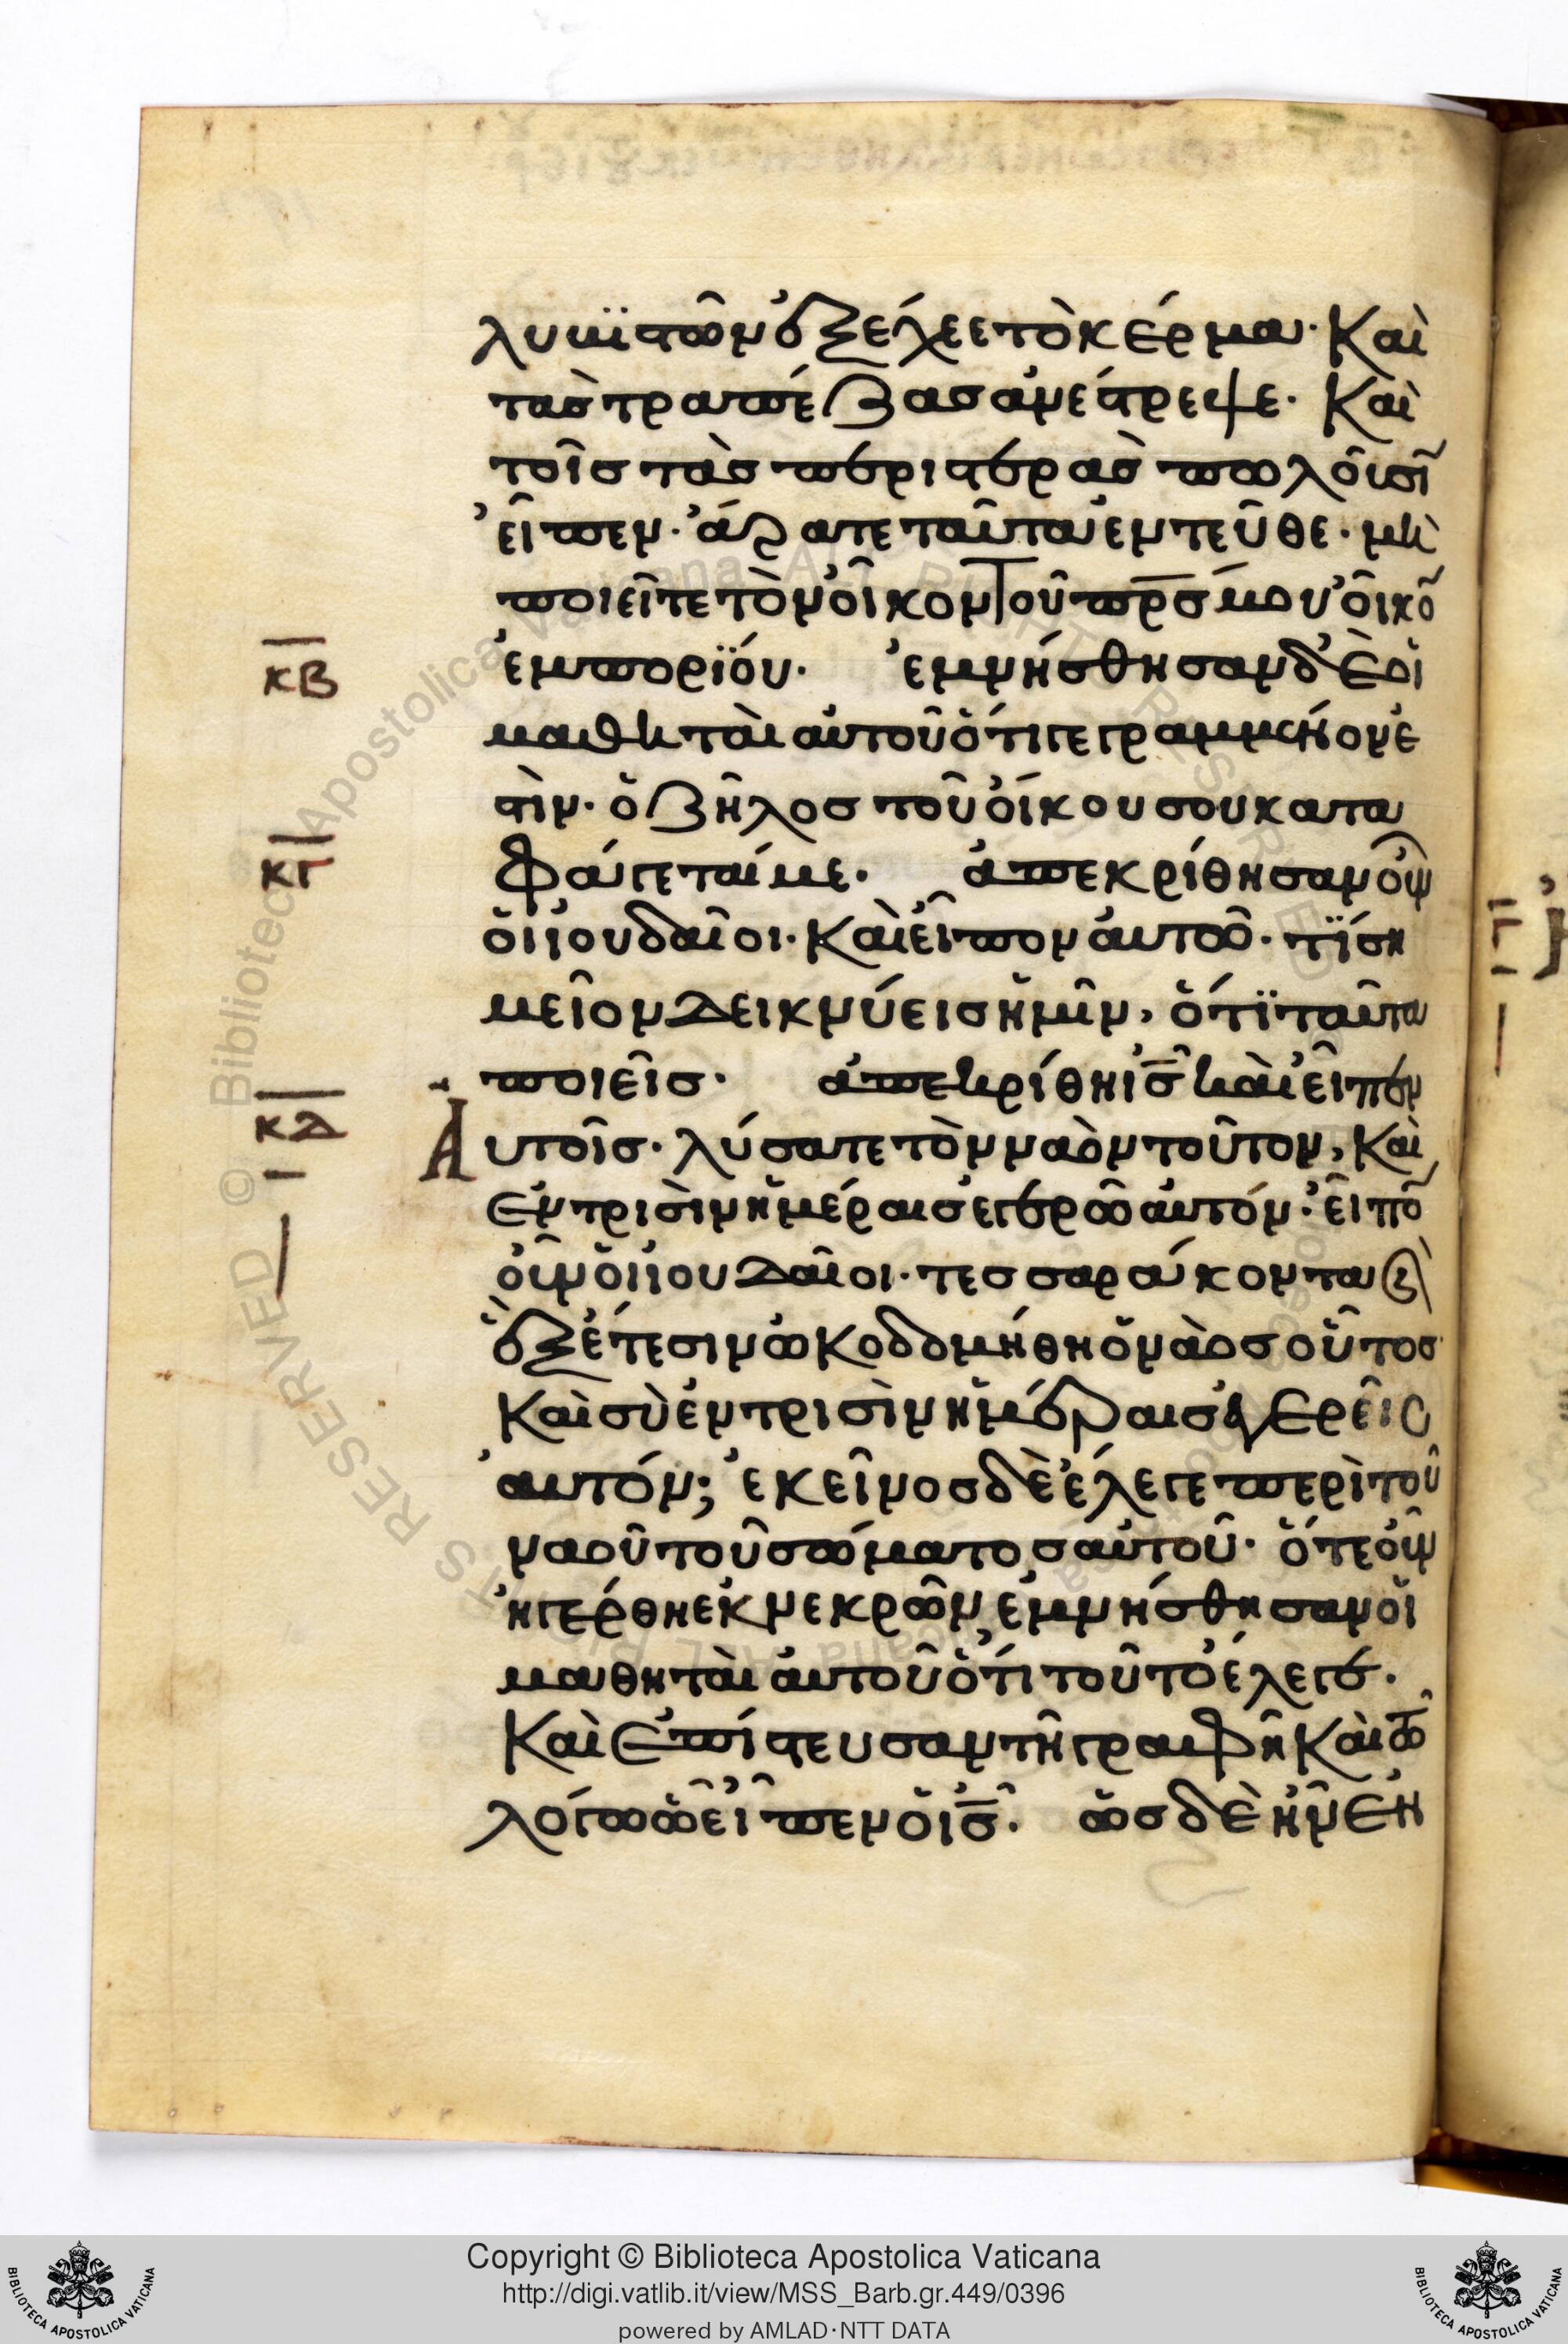 λυϊστῶν ἐξέχεε τὸ κέρμα· Καὶ
τὰς τραπέζας ἀνέστρεψε· Καὶ
τοῖς τὰς περιστερὰς πωλοῦσῖ
εἶπεν· ἄρατε ταῦτα ἐντεῦθε· μὴ
ποιεῖτε τὸν οἶκον τοῦ πρ̅ς μου οἶκο̅
ἐμπορϊόυ· ἐμνήσθησαν δὲ οἱ
κβ
μαθηταὶ αὐτοῦ ὅτι γεγραμμένον ἐ
στὶν· ὁ ζῆλος τοῦ οἴκου σου κατα
φάγεταί με· ἀπεκρίθησαν οὖν
κγ
οἱ ἰουδαῖοι· Καὶ εἶπον αὐτῶ· τΐ ση
μεῖον δεικνύεις ἡμῖν, ὅτϊ ταῦτα
ποιεῖς· ἀπεκρίθη ις̅ καὶ εἶπεν
κδ
Αυτοῖς· λύσατε τὸν ναὸν τοῦτον, Καὶ
ἐν τρισὶν ἡμέραις ἐγερῶ αὐτόν· εἶπο̅
οὖν οἱ ἰουδαῖοι· τεσσαράκοντα (καὶ)
ἓξ ἔτεσιν ὠκοδομήθη ὁ ναὸς οὗτος
Καὶ σὺ ἐν τρισὶν ἡμέραις ἐγερεῖς
αὐτόν; ἐκεῖνος δὲ ἔλεγε περὶ τοῦ
ναοῦ τοῦ σώματος αὐτοῦ· ὅτε οὖν
ἠγέρθη ἐκ νεκρῶν ἐμνήσθησαν οἱ
μαθηταὶ αὐτοῦ ὅτι τοῦτο ἔλεγε·
Καὶ ἐπίστευσαν τῆ γραφῆ Καὶ τῶ
λόγω ὧ εἶπεν ὁ ις̅· ὡς δὲ ἦν ἐν
Copyright © Biblioteca Apostolica Vaticana
http://digi.vatlib.it/view/MSS_Barb.gr.449/0396
powered by AMLAD·NTT DATA